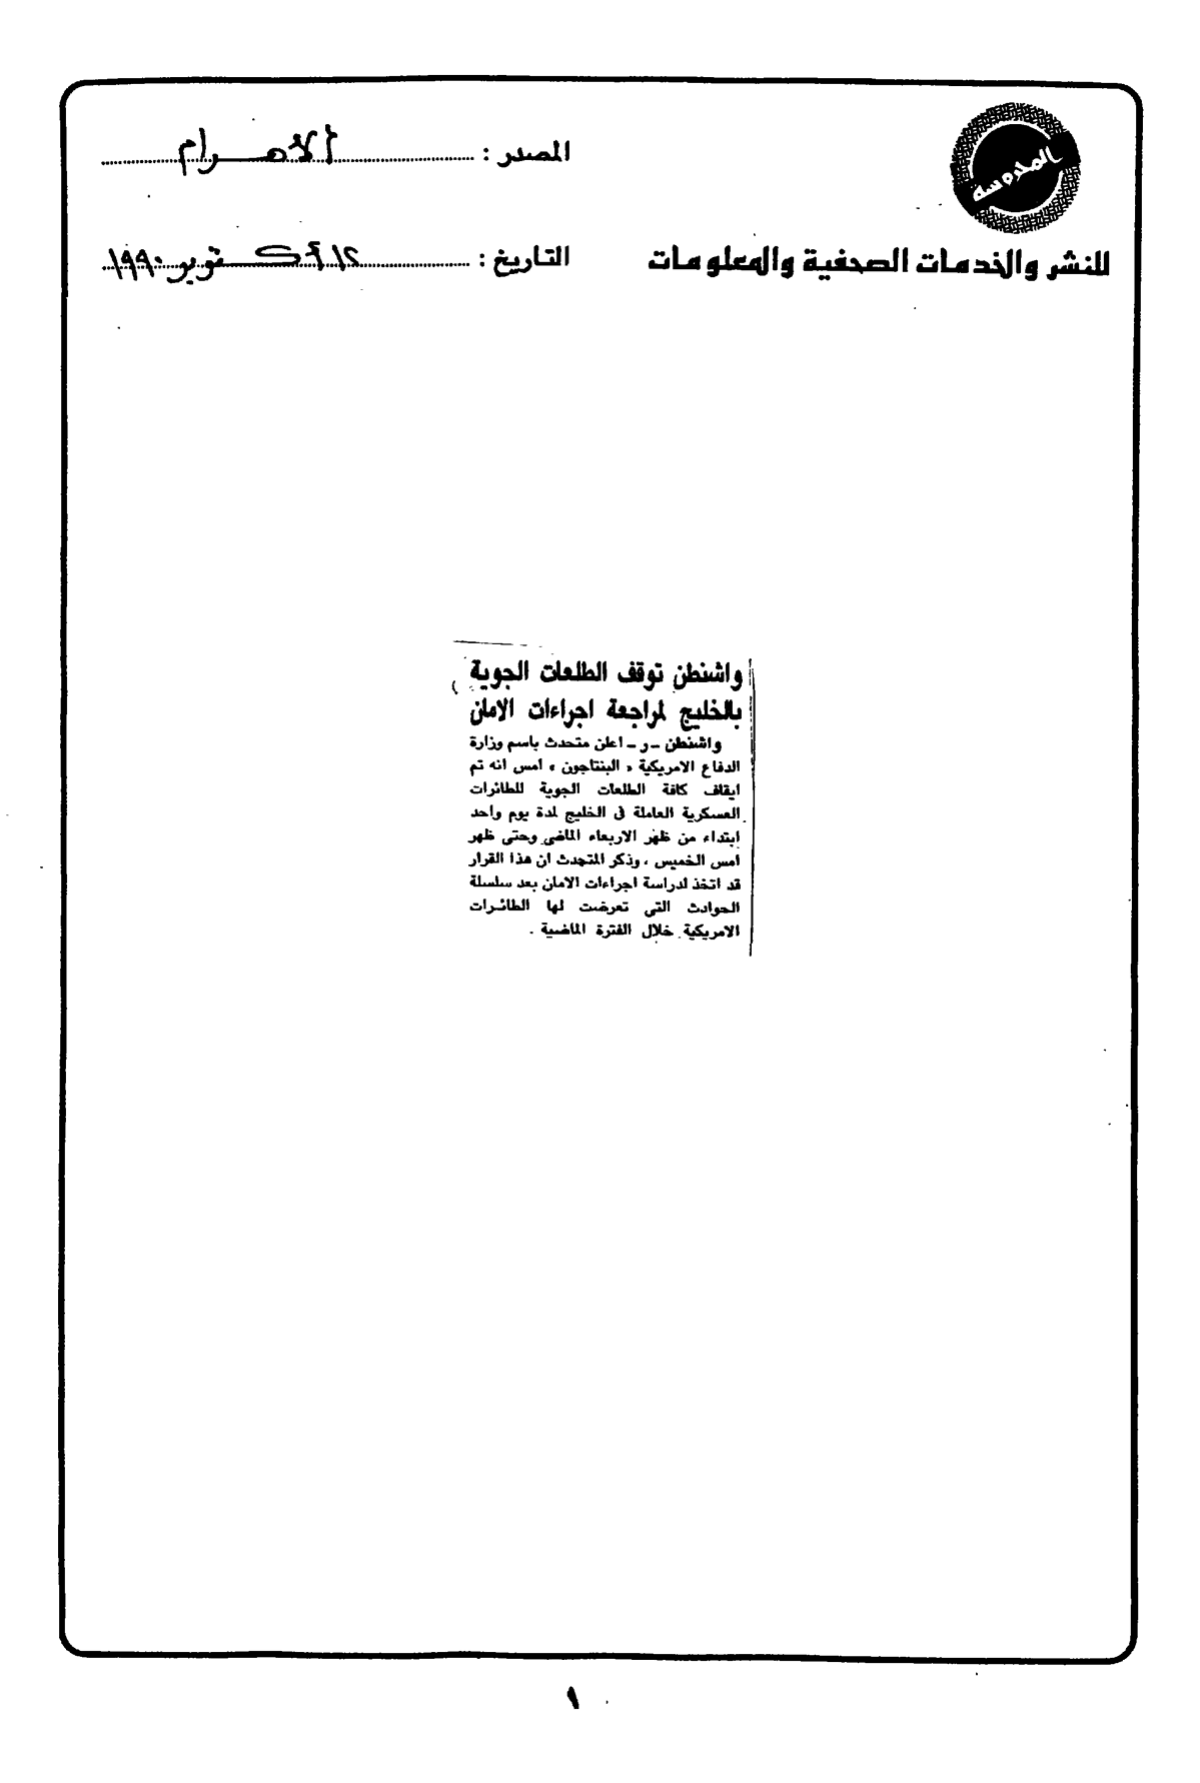 المحروسة
للنشر والخدمات الصحفية والمعلومات
المصدر : الأهرام
التاريخ : ١٢ أكتوبر ١٩٩٠
واشنطن توقف الطلعات الجوية
بالخليج لمراجعة اجراءات الامان
واشنطن ـ ر ـ اعلن متحدث باسم وزارة
الدفاع الامريكية « البنتاجون » امس انه تم
ايقاف كافة الطلعات الجوية للطائرات
العسكرية العاملة فى الخليج لمدة يوم واحد
ابتداء من ظهر الاربعاء الماضى وحتى ظهر
امس الخميس ، وذكر المتحدث ان هذا القرار
قد اتخذ لدراسة اجراءات الامان بعد سلسلة
الحوادث التى تعرضت لها الطائرات
الامريكية خلال الفترة الماضية .
١